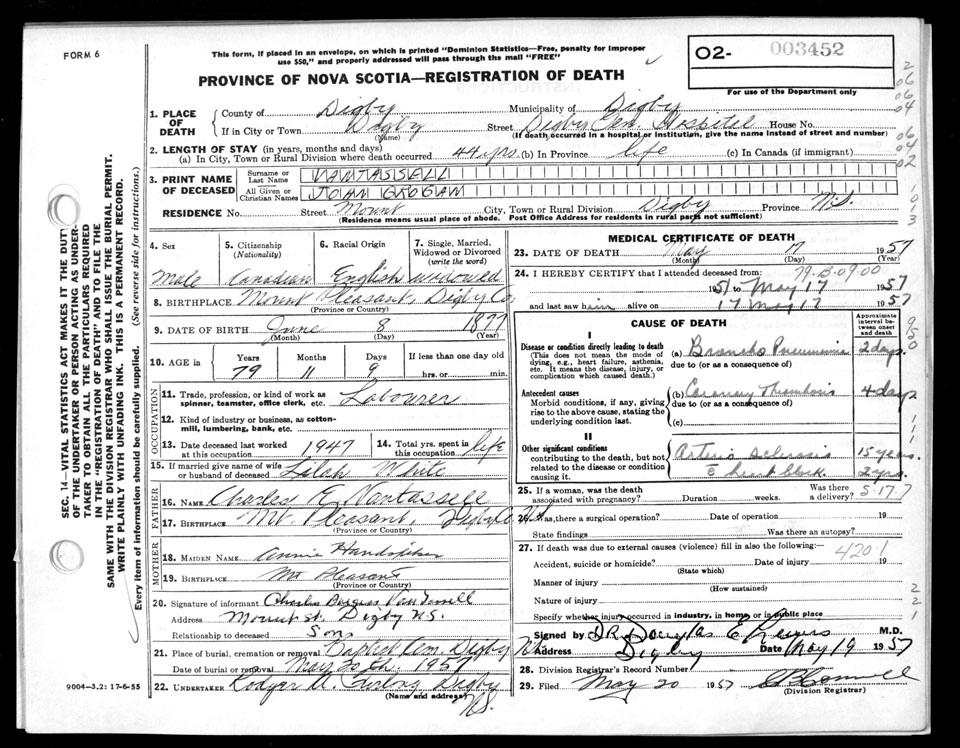 FORM 6
This form, if placed in an envelope, on which is printed "Dominion Statistics—Free, penalty for improper
use $50," and properly addressed will pass through the mail "FREE"
PROVINCE OF NOVA SCOTIA—REGISTRATION OF DEATH
O2- 003452
For use of the Department only
1. PLACE OF DEATH
County of Digby Municipality of Digby
If in City or Town Digby Street Digby Gen. Hospital House No.
(Name) (If death occurred in a hospital or institution, give the name instead of street and number)
2. LENGTH OF STAY (in years, months and days)
(a) In City, Town or Rural Division where death occurred 44 yrs. (b) In Province life (c) In Canada (if immigrant)
3. PRINT NAME OF DECEASED
Surname or Last Name VANTASSELL
All Given or Christian Names JOHN GROGAN
RESIDENCE No. Street Mount City, Town or Rural Division Digby Province N.S.
(Residence means usual place of abode. Post Office Address for residents in rural parts not sufficient)
4. Sex
5. Citizenship
(Nationality)
6. Racial Origin
7. Single, Married,
Widowed or Divorced
(write the word)
Male Canadian English widowed
8. BIRTHPLACE Mount Pleasant, Digby Co.
(Province or Country)
9. DATE OF BIRTH June 8 1877
(Month) (Day) (Year)
10. AGE in Years Months Days If less than one day old
79 11 9 hrs. or min.
OCCUPATION
11. Trade, profession, or kind of work as
spinner, teamster, office clerk, etc. Labourer
12. Kind of industry or business, as cotton-
mill, lumbering, bank, etc.
13. Date deceased last worked
at this occupation 1947
14. Total yrs. spent in
this occupation life
15. If married give name of wife
or husband of deceased Lilah White
FATHER
16. NAME Charles E. Vantassell
17. BIRTHPLACE Mt. Pleasant, Digby Co. N.S.
(Province or Country)
MOTHER
18. MAIDEN NAME Annie
19. BIRTHPLACE Mt Pleasant
(Province or Country)
20. Signature of informant Charles Burgess VanTassell
Address Mount St. Digby N.S.
Relationship to deceased Son
21. Place of burial, cremation or removal Baptist Cem. Digby N.S.
Date of burial or removal May 20th, 1957
22. UNDERTAKER Digby N.S.
(Name and address)
9004—3.2: 17-6-55
MEDICAL CERTIFICATE OF DEATH
23. DATE OF DEATH May 17 1957
(Month) (Day) (Year)
24. I HEREBY CERTIFY that I attended deceased from:
79-B-09-00
1957 to May 17 1957
and last saw him alive on 17 May 17 1957
CAUSE OF DEATH
Approximate
interval be-
tween onset
and death
I
Disease or condition directly leading to death
(This does not mean the mode of
dying, e.g., heart failure, asthenia,
etc. It means the disease, injury, or
complication which caused death.)
(a) Broncho Pneumonia 2 days.
due to (or as a consequence of)
Antecedent causes
Morbid conditions, if any, giving
rise to the above cause, stating the
underlying condition last.
(b) Coronary Thrombosis 4 days
due to (or as a consequence of)
(c)
II
Other significant conditions
contributing to the death, but not
related to the disease or condition
causing it.
Arterio sclerosis 15 years.
c heart block. 2 yrs.
25. If a woman, was the death
associated with pregnancy? Duration weeks. Was there
a delivery?
5-17 7
26. Was there a surgical operation? Date of operation 19
State findings Was there an autopsy?
27. If death was due to external causes (violence) fill in also the following:—
4201
Accident, suicide or homicide? Date of injury 19
(State which)
Manner of injury
(How sustained)
Nature of injury
Specify whether injury occurred in industry, in home or in public place
Signed by DR. Douglas E. Lewis M.D.
Address Digby Date May 19 1957
28. Division Registrar's Record Number
29. Filed May 20 1957
(Division Registrar)
SEC. 14—VITAL STATISTICS ACT MAKES IT THE DUTY
OF THE UNDERTAKER OR PERSON ACTING AS UNDER-
TAKER TO OBTAIN ALL THE PARTICULARS REQUIRED
IN THE "REGISTRATION OF DEATH" AND TO FILE THE
SAME WITH THE DIVISION REGISTRAR WHO SHALL ISSUE THE BURIAL PERMIT.
WRITE PLAINLY WITH UNFADING INK. THIS IS A PERMANENT RECORD.
Every item of information should be carefully supplied. (See reverse side for instructions.)